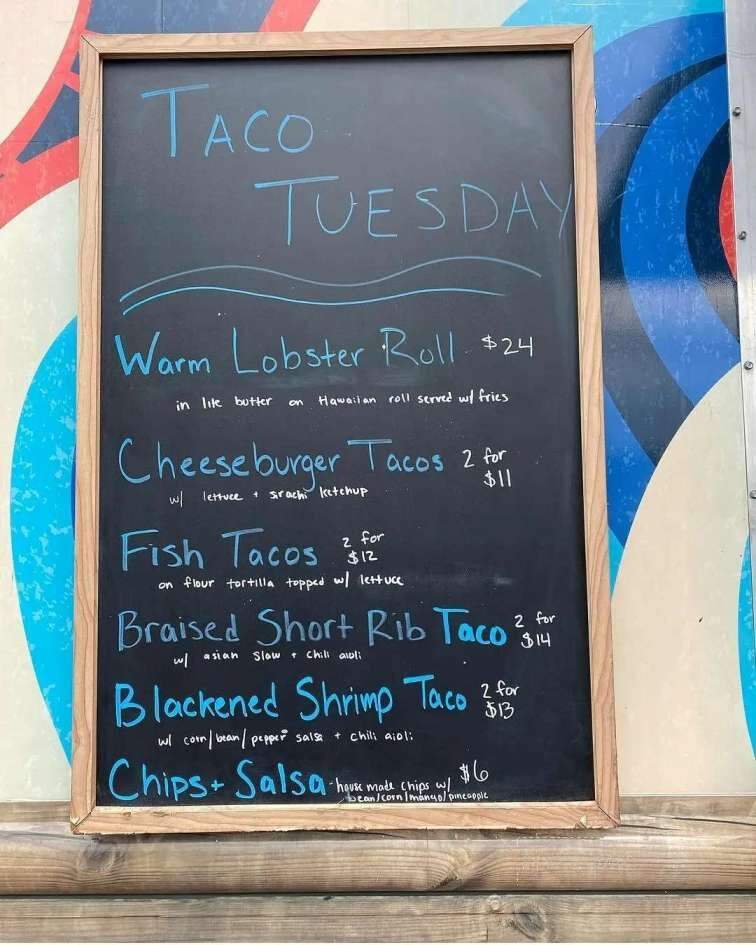 TACO
TUESDAY
Warm Lobster Roll $24
in lite butter on Hawaiian roll served w/ fries
Cheeseburger Tacos 2 for
$11
w/ lettuce + srachi ketchup
Fish Tacos 2 for
$12
on flour tortilla topped w/ lettuce
Braised Short Rib Taco 2 for
$14
w/ asian slaw + chili aioli
Blackened Shrimp Taco 2 for
$13
w/ corn/bean/pepper salsa + chili aioli
Chips + Salsa - house made chips w/ $6
bean/corn/mango/pineapple